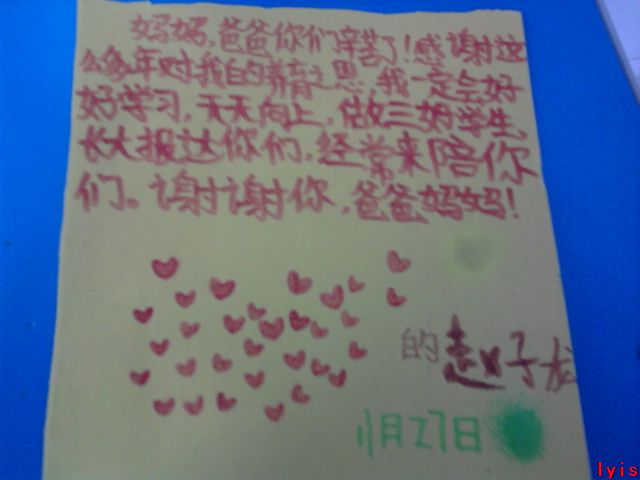 妈妈,爸爸你们辛苦了!感谢这
么多年对我自的养育之恩,我一定会好
好学习,天天向上,做三好学生,
长大报达你们,经常来陪你
们。谢谢你,爸爸妈妈!
的赵子龙
11月27日
lyis